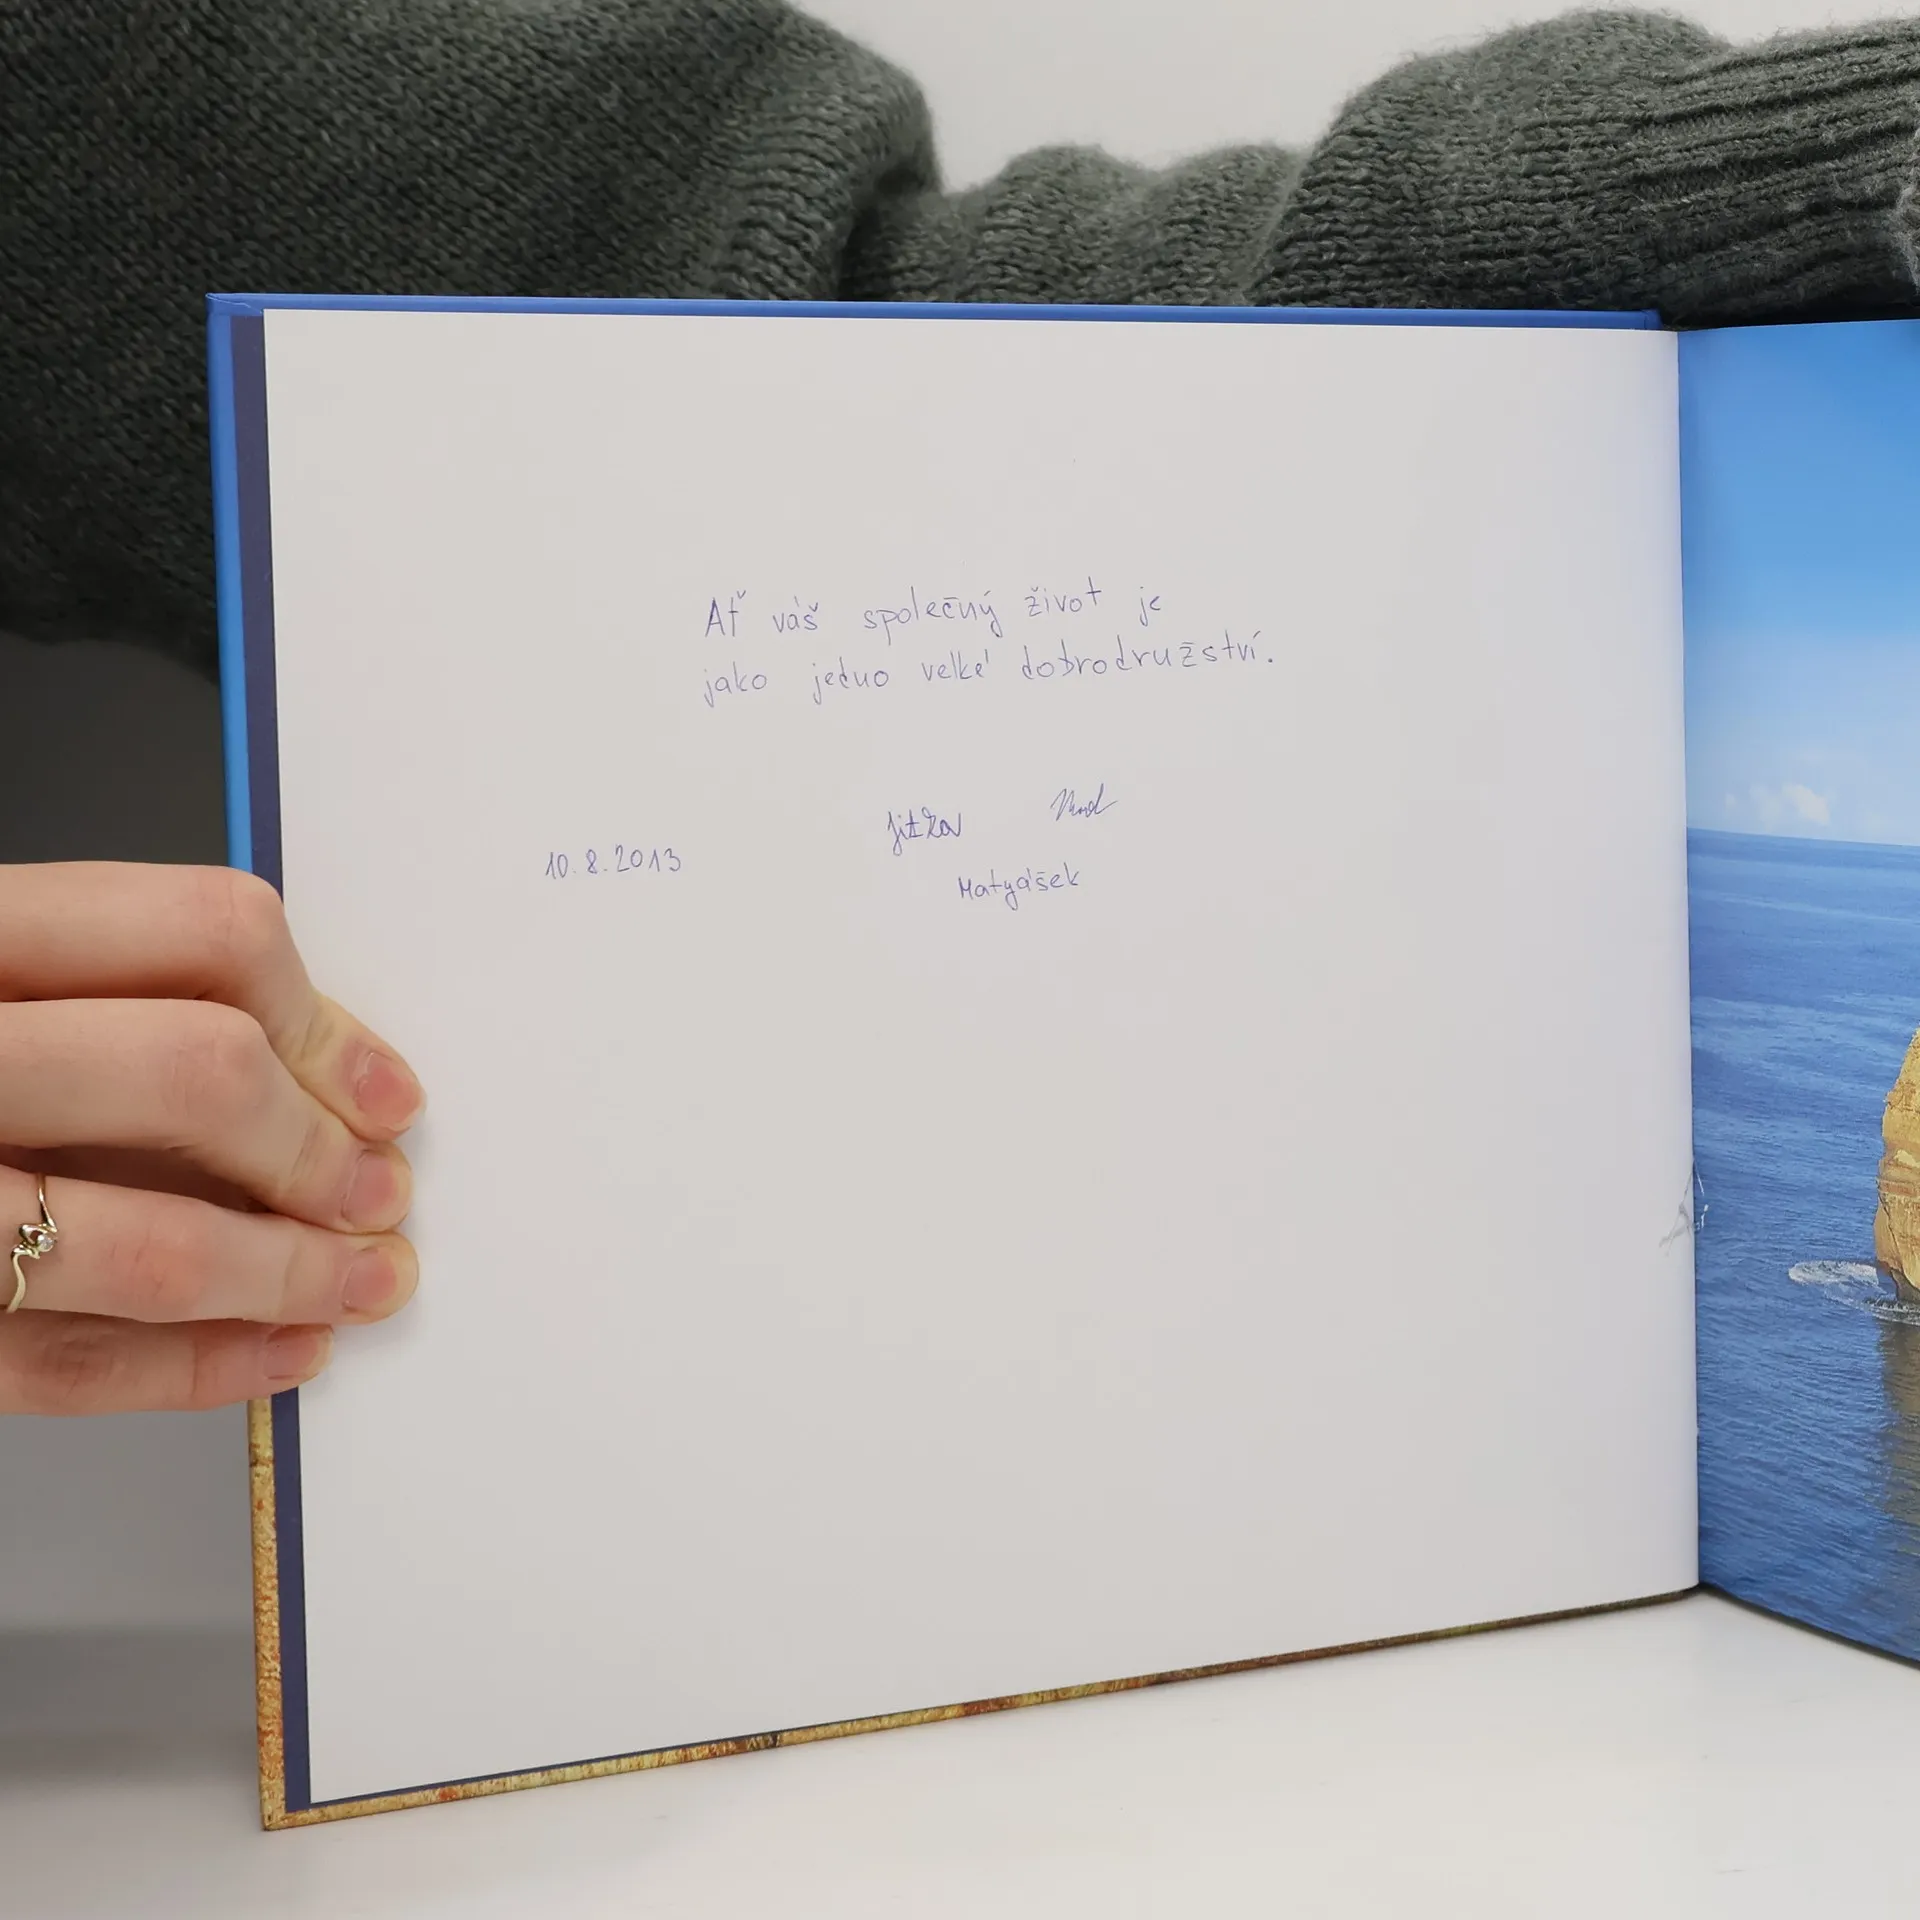 Ať váš společný život je
jako jedno velké dobrodružství.
Jitka
10.8.2013
Matyášek